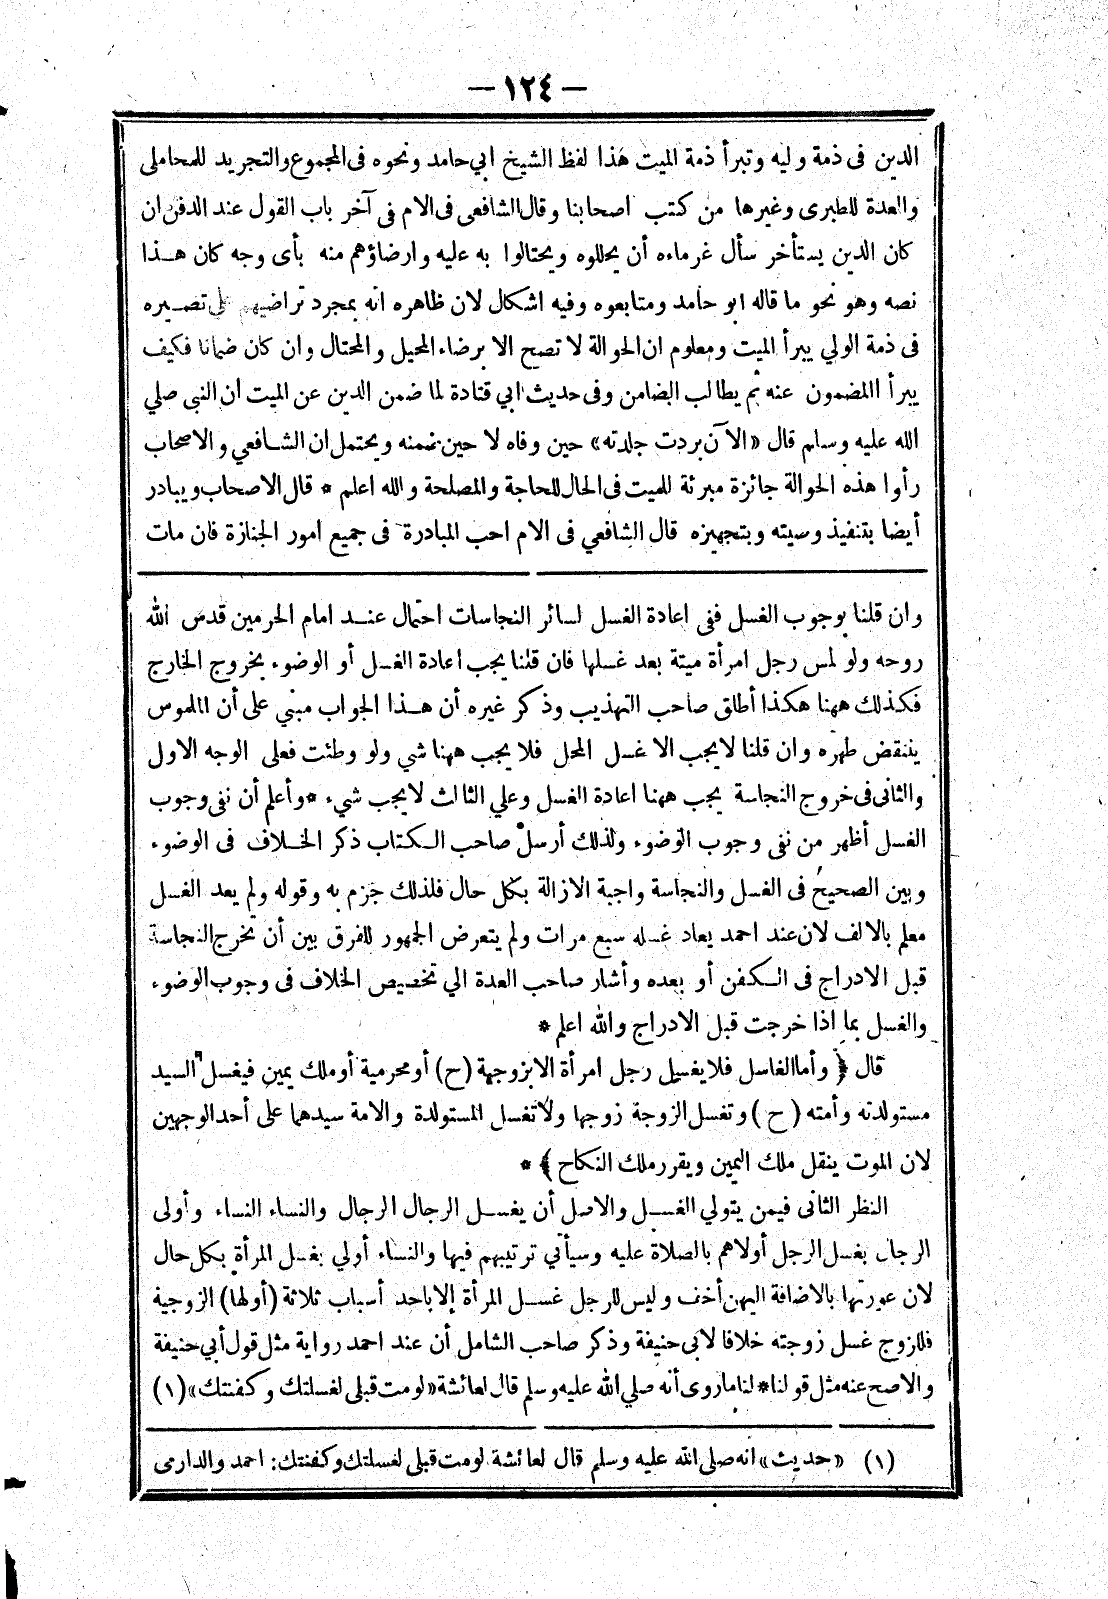 — ١٢٤ —
الدين فى ذمة وليه وتبرأ ذمة الميت هذا لفظ الشيخ ابي حامد ونحوه فى المجموع والتجريد للمحاملى
والعدة للطبرى وغيرها من كتب اصحابنا وقال الشافعى فى الام فى آخر باب القول عند الدفن ان
كان الدين يستأخر سأل غرماءه أن يحللوه ويحتالوا به عليه وارضاؤهم منه بأى وجه كان هـذا
نصه وهو نحو ما قاله ابو حامد ومتابعوه وفيه اشكال لان ظاهره انه بمجرد تراضيهم على تصـيره
فى ذمة الولي يبرأ الميت ومعلوم ان الحوالة لا تصح الا برضاء المحيل والمحتال وان كان ضمانا فكيف
يبرأ االمضمون عنه ثم يطالب الضامن وفى حديث ابي قتادة لما ضمن الدين عن الميت ان النبى صلي
الله عليه وسلم قال «الآن بردت جلدته» حين وفاه لا حين ضمنه ويحتمل ان الشافعي والاصحاب
رأوا هذه الحوالة جائزة مبرئة للميت فى الحال للحاجة والمصلحة والله اعلم * قال الاصحاب ويبادر
أيضا بتنفيذ وصيته وبتجهيزه قال الشافعي فى الام احب المبادرة فى جميع امور الجنازة فان مات
وان قلنا بوجوب الغسل ففى اعادة الغسل لسائر النجاسات احتمال عنـد امام الحرمين قدس الله
روحه ولو لمس رجل امرأة ميتة بعد غسلها فان قلنا يجب اعادة الغسل أو الوضوء بخروج الخارج
فكذلك ههنا هكذا أطلق صاحب التهذيب وذكر غيره أن هـذا الجواب مبني على أن الملموس
ينتقض طهره وان قلنا لا يجب الا غسل المحل فلا يجب ههنا شي ولو وطئت فعلى الوجه الاول
والثانى فى خروج النجاسة يجب ههنا اعادة الغسل وعلي الثالث لا يجب شيء * وأعلم أن نفى وجوب
الغسل أظهر من نفى وجوب الوضوء ولذلك أرسل صاحب الـكتاب ذكر الخـلاف فى الوضوء
وبين الصحيح فى الغسل والنجاسة واجبة الازالة بكل حال فلذلك جزم به وقوله ولم يعد الغسل
معلم بالالف لان عند احمد يعاد غسله سبع مرات ولم يتعرض الجمهور للفرق بين أن تخرج النجاسة
قبل الادراج فى الـكفن أو بعده وأشار صاحب العدة الي تخصيص الخلاف فى وجوب الوضوء
والغسل بما اذا خرجت قبل الادراج والله اعلم *
قال ﴿ وأما الغاسل فلا يغسل رجل امرأة الا بزوجية (ح) أو محرمية أو ملك يمين فيغسل السيد
مستولدته وأمته (ح) وتغسل الزوجة زوجها ولا تغسل المستولدة والامة سيدهما على أحد الوجهين
لان الموت ينقل ملك اليمين ويقرر ملك النكاح ﴾ *
النظر الثانى فيمن يتولي الغسـل والاصل أن يغسـل الرجال الرجال والنساء النساء وأولى
الرجال بغسل الرجل أولاهم بالصلاة عليه وسيأتي ترتيبهم فيها والنساء أولي بغسل المرأة بكل حال
لان عورتها بالاضافة اليهن أخف وليس للرجل غسـل المرأة إلا باحد أسباب ثلاثة (أولها) الزوجية
فللزوج غسل زوجته خلافا لابى حنيفة وذكر صاحب الشامل أن عند احمد رواية مثل قول أبي حنيفة
والاصح عنه مثل قولنا * لنا ما روى أنه صلي الله عليه وسلم قال لعائشة «لو مت قبلى لغسلتك وكفنتك» (١)
(١) «حديث» انه صلى الله عليه وسلم قال لعائشة لو مت قبلي لغسلتك وكفنتك: احمد والدارمى